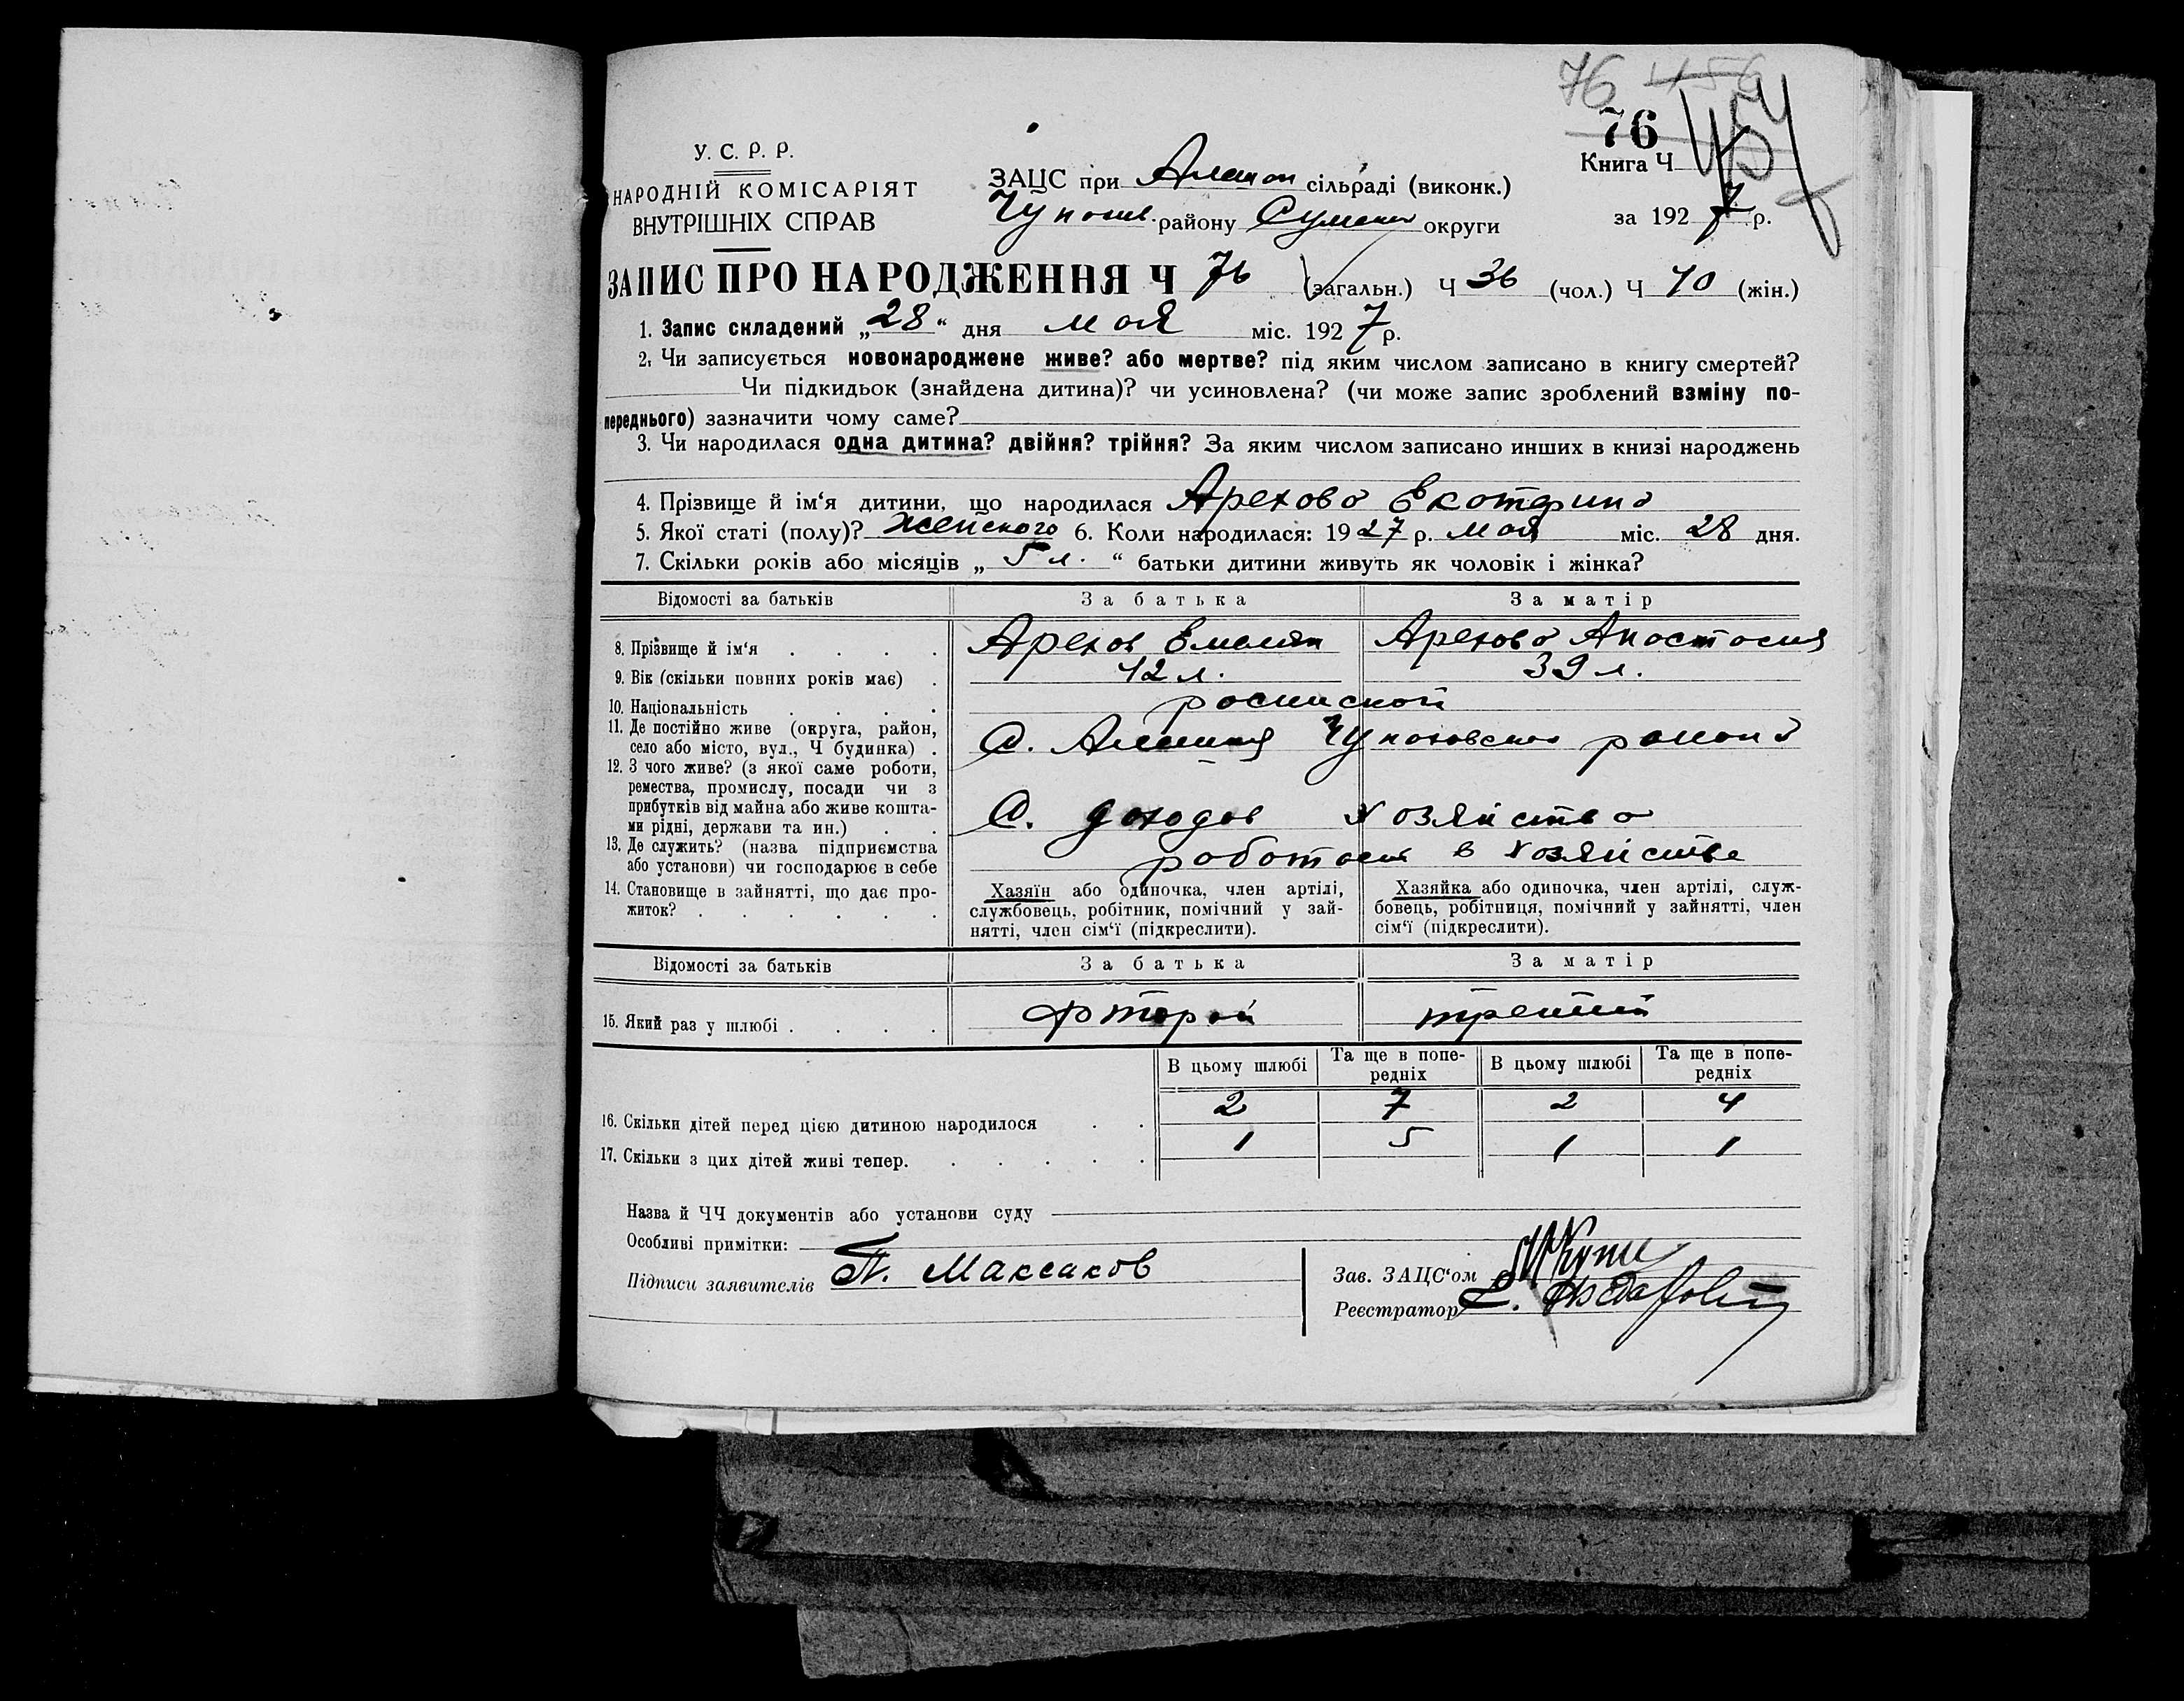 76 456
76
У. С. Р. Р.
НАРОДНІЙ КОМІСАРІЯТ
ВНУТРІШНІХ СПРАВ
ЗАЦС при Алешон сільраді (виконк.)
Чупахів. району Сумском округи
Книга Ч 457
за 1927 р.
ЗАПИС ПРО НАРОДЖЕННЯ Ч 76 (загальн.) Ч 36 (чол.) Ч 40 (жін.)
1. Запис складений „28“ дня мая міс. 1927 р.
2. Чи записується новонароджене живе? або мертве? під яким числом записано в книгу смертей?
Чи підкидьок (знайдена дитина)? чи усиновлена? (чи може запис зроблений взміну по-
переднього) зазначити чому саме?
3. Чи народилася одна дитина? двійня? трійня? За яким числом записано инших в книзі народжень
4. Прізвище й ім‘я дитини, що народилася Арехова Екотерина
5. Якої статі (полу)? женского 6. Коли народилася: 1927 р. мая міс. 28 дня.
7. Скільки років або місяців „ 5 л. “ батьки дитини живуть як чоловік і жінка?
Відомості за батьків За батька За матір
8. Прізвище й ім‘я . . . . Арехов Емельян Арехова Анастасия
9. Вік (скільки повних років має) . 42 л. 39 л.
10. Національність . . . . росииской
11. Де постійно живе (округа, район,
село або місто, вул., Ч будинка) . С. Алешня Чупаховског района
12. З чого живе? (з якої саме роботи,
ремества, промислу, посади чи з
прибутків від майна або живе кошта-
ми рідні, держави та ин.) . . С. доходов хозяйства
13. Де служить? (назва підприємства
або установи) чи господарює в себе работает в хозяйстве
14. Становище в зайнятті, що дає про-
житок? . . . . . .
Хазяїн або одиночка, член артілі,
службовець, робітник, помічний у зай-
нятті, член сім‘ї (підкреслити).
Хазяйка або одиночка, член артілі, служ-
бовець, робітниця, помічний у зайнятті, член
сім‘ї (підкреслити).
Відомості за батьків За батька За матір
15. Який раз у шлюбі . . . . фторой третий
В цьому шлюбі Та ще в попе-
редніх В цьому шлюбі Та ще в попе-
редніх
16. Скільки дітей перед цією дитиною народилося . . 2 7 2 4
17. Скільки з цих дітей живі тепер. . . . . . 1 5 1 1
Назва й ЧЧ документів або установи суду
Особливі примітки:
Підписи заявителів П. Максаков
Зав. ЗАЦС‘ом
Реєстратор